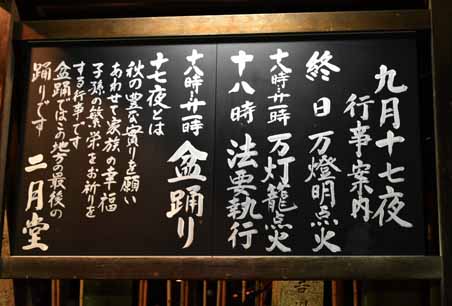 九月十七夜
行事案内
終日万燈明点火
十八時-廿一時 万灯籠点火
十八時 法要執行
十八時-廿一時 盆踊り
十七夜とは
秋の豊な実りを願い
あわせて家族の幸福
子孫の繁栄をお祈りを
する行事です
盆踊ではこの地方の最後の
踊りです 二月堂